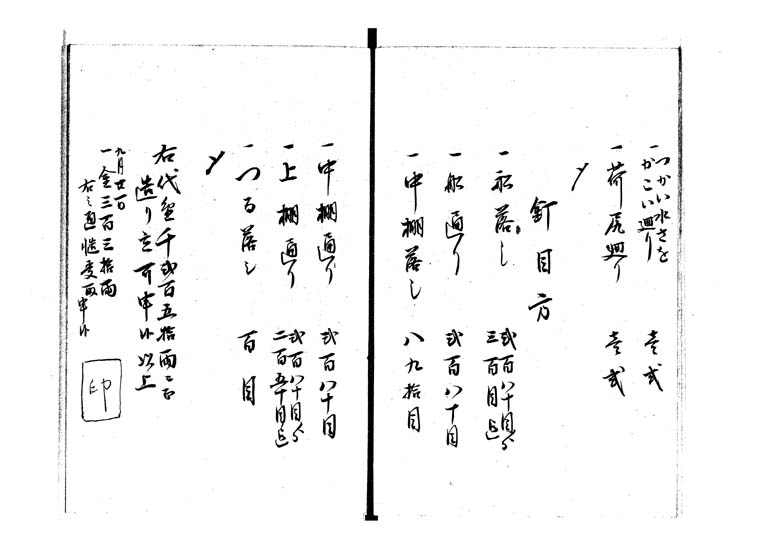 一つかい水さを
かこい廻り 壱式
一荷尻廻り 壱式
〆
釘目方
一永落し 弐百八十目ゟ
三百目迄
一舩通り 弐百八十目
一中棚落し 八九拾目
一中棚通り 弐百八十目
一上棚通り 弐百八十目ゟ
二百五十目迄
一つる落し 百目
〆
右代金千弐百五拾両ニ而
造り立可申候以上
九月廿一日
一金三百三拾両
右之通慥受取申候
印